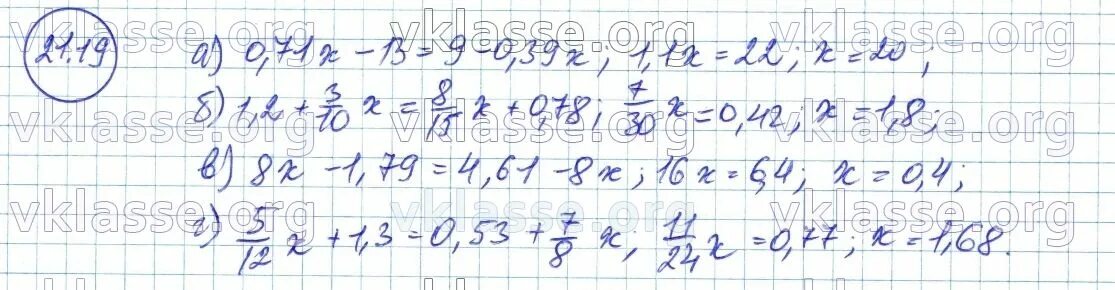 vklasse.org vklasse.org vklasse.org
21.19 а) 0,71x − 13 = 9 − 0,39x; 1,1x = 22; x = 20;
б) 1,2 + 3/10 x = 8/15 x + 0,78; 7/30 x = 0,42; x = 1,8;
vklasse.org vklasse.org vklasse.org
в) 8x − 1,79 = 4,61 − 8x; 16x = 6,4; x = 0,4;
vklasse.org vklasse.org vklasse.org
г) 5/12 x + 1,3 = 0,53 + 7/8 x; 11/24 x = 0,77; x = 1,68.